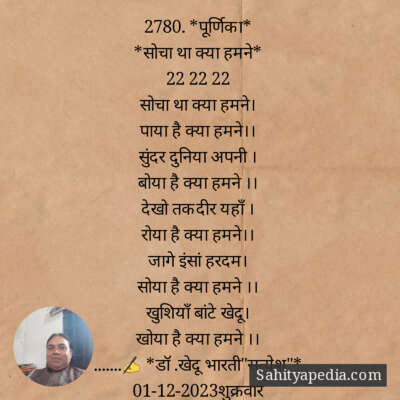 2780. *पूर्णिका*
*सोचा था क्या हमने*
22 22 22
सोचा था क्या हमने।
पाया है क्या हमने।।
सुंदर दुनिया अपनी ।
बोया है क्या हमने ।।
देखो तकदीर यहाँ ।
रोया है क्या हमने।।
जागे इंसां हरदम।
सोया है क्या हमने ।।
खुशियाँ बांटे खेदू।
खोया है क्या हमने ।।
.......✍ *डॉ .खेदू भारती
Sahityapedia.com
01-12-2023शुक्रवार